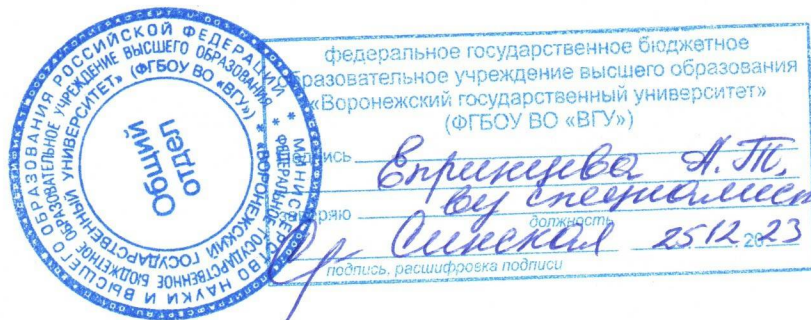 МИНИСТЕРСТВО НАУКИ И ВЫСШЕГО ОБРАЗОВАНИЯ РОССИЙСКОЙ ФЕДЕРАЦИИ *
ФЕДЕРАЛЬНОЕ ГОСУДАРСТВЕННОЕ БЮДЖЕТНОЕ ОБРАЗОВАТЕЛЬНОЕ УЧРЕЖДЕНИЕ ВЫСШЕГО ОБРАЗОВАНИЯ *
«ВОРОНЕЖСКИЙ ГОСУДАРСТВЕННЫЙ УНИВЕРСИТЕТ» (ФГБОУ ВО «ВГУ») *
Общий
отдел
федеральное государственное бюджетное
образовательное учреждение высшего образования
«Воронежский государственный университет»
(ФГБОУ ВО «ВГУ»)
подпись Епринцева А.Т.
заверяю
должность
Синская 25 12 2023
подпись, расшифровка подписи